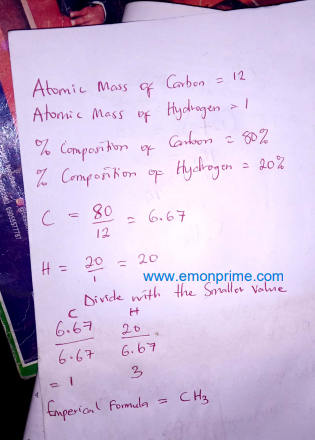 Atomic Mass of Carbon = 12
Atomic Mass of Hydrogen = 1
% Composition of Carbon = 80%
% Composition of Hydrogen = 20%
C = 80/12 = 6.67
H = 20/1 = 20
www.emonprime.com
Divide with the Smaller value
C H
6.67/6.67 20/6.67
= 1 3
Emperical Formula = CH3